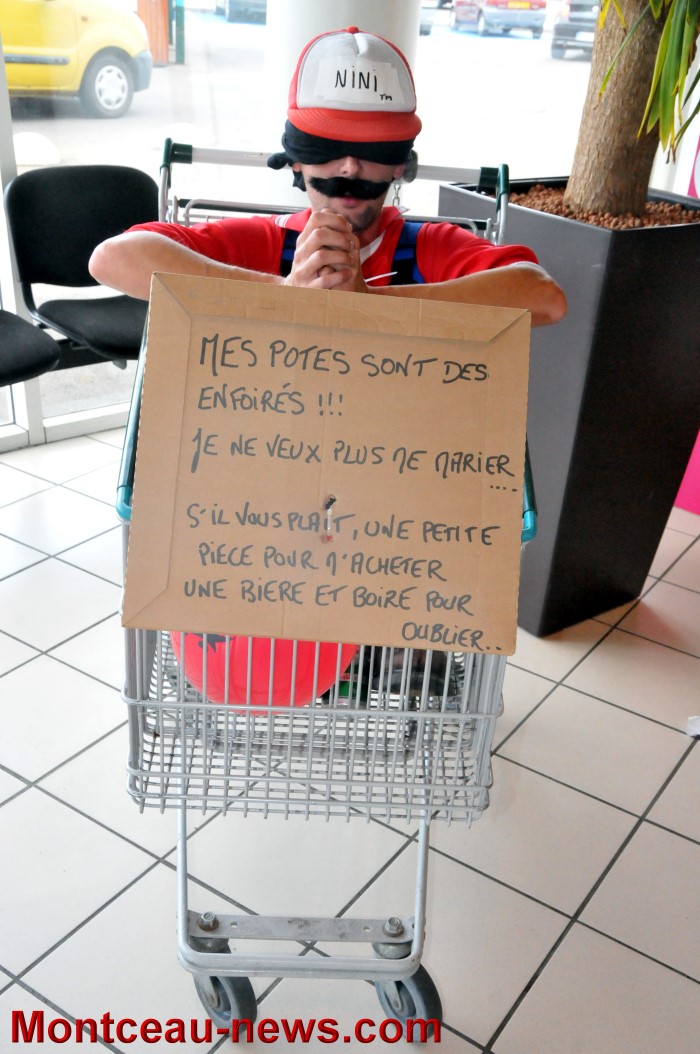 NINI
TM
MES POTES SONT DES
ENFOIRÉS !!!
JE NE VEUX PLUS ME MARIER
....
S'IL VOUS PLAÎT, UNE PETITE
PIECE POUR M'ACHETER
UNE BIERE ET BOIRE POUR
OUBLIER..
Montceau-news.com